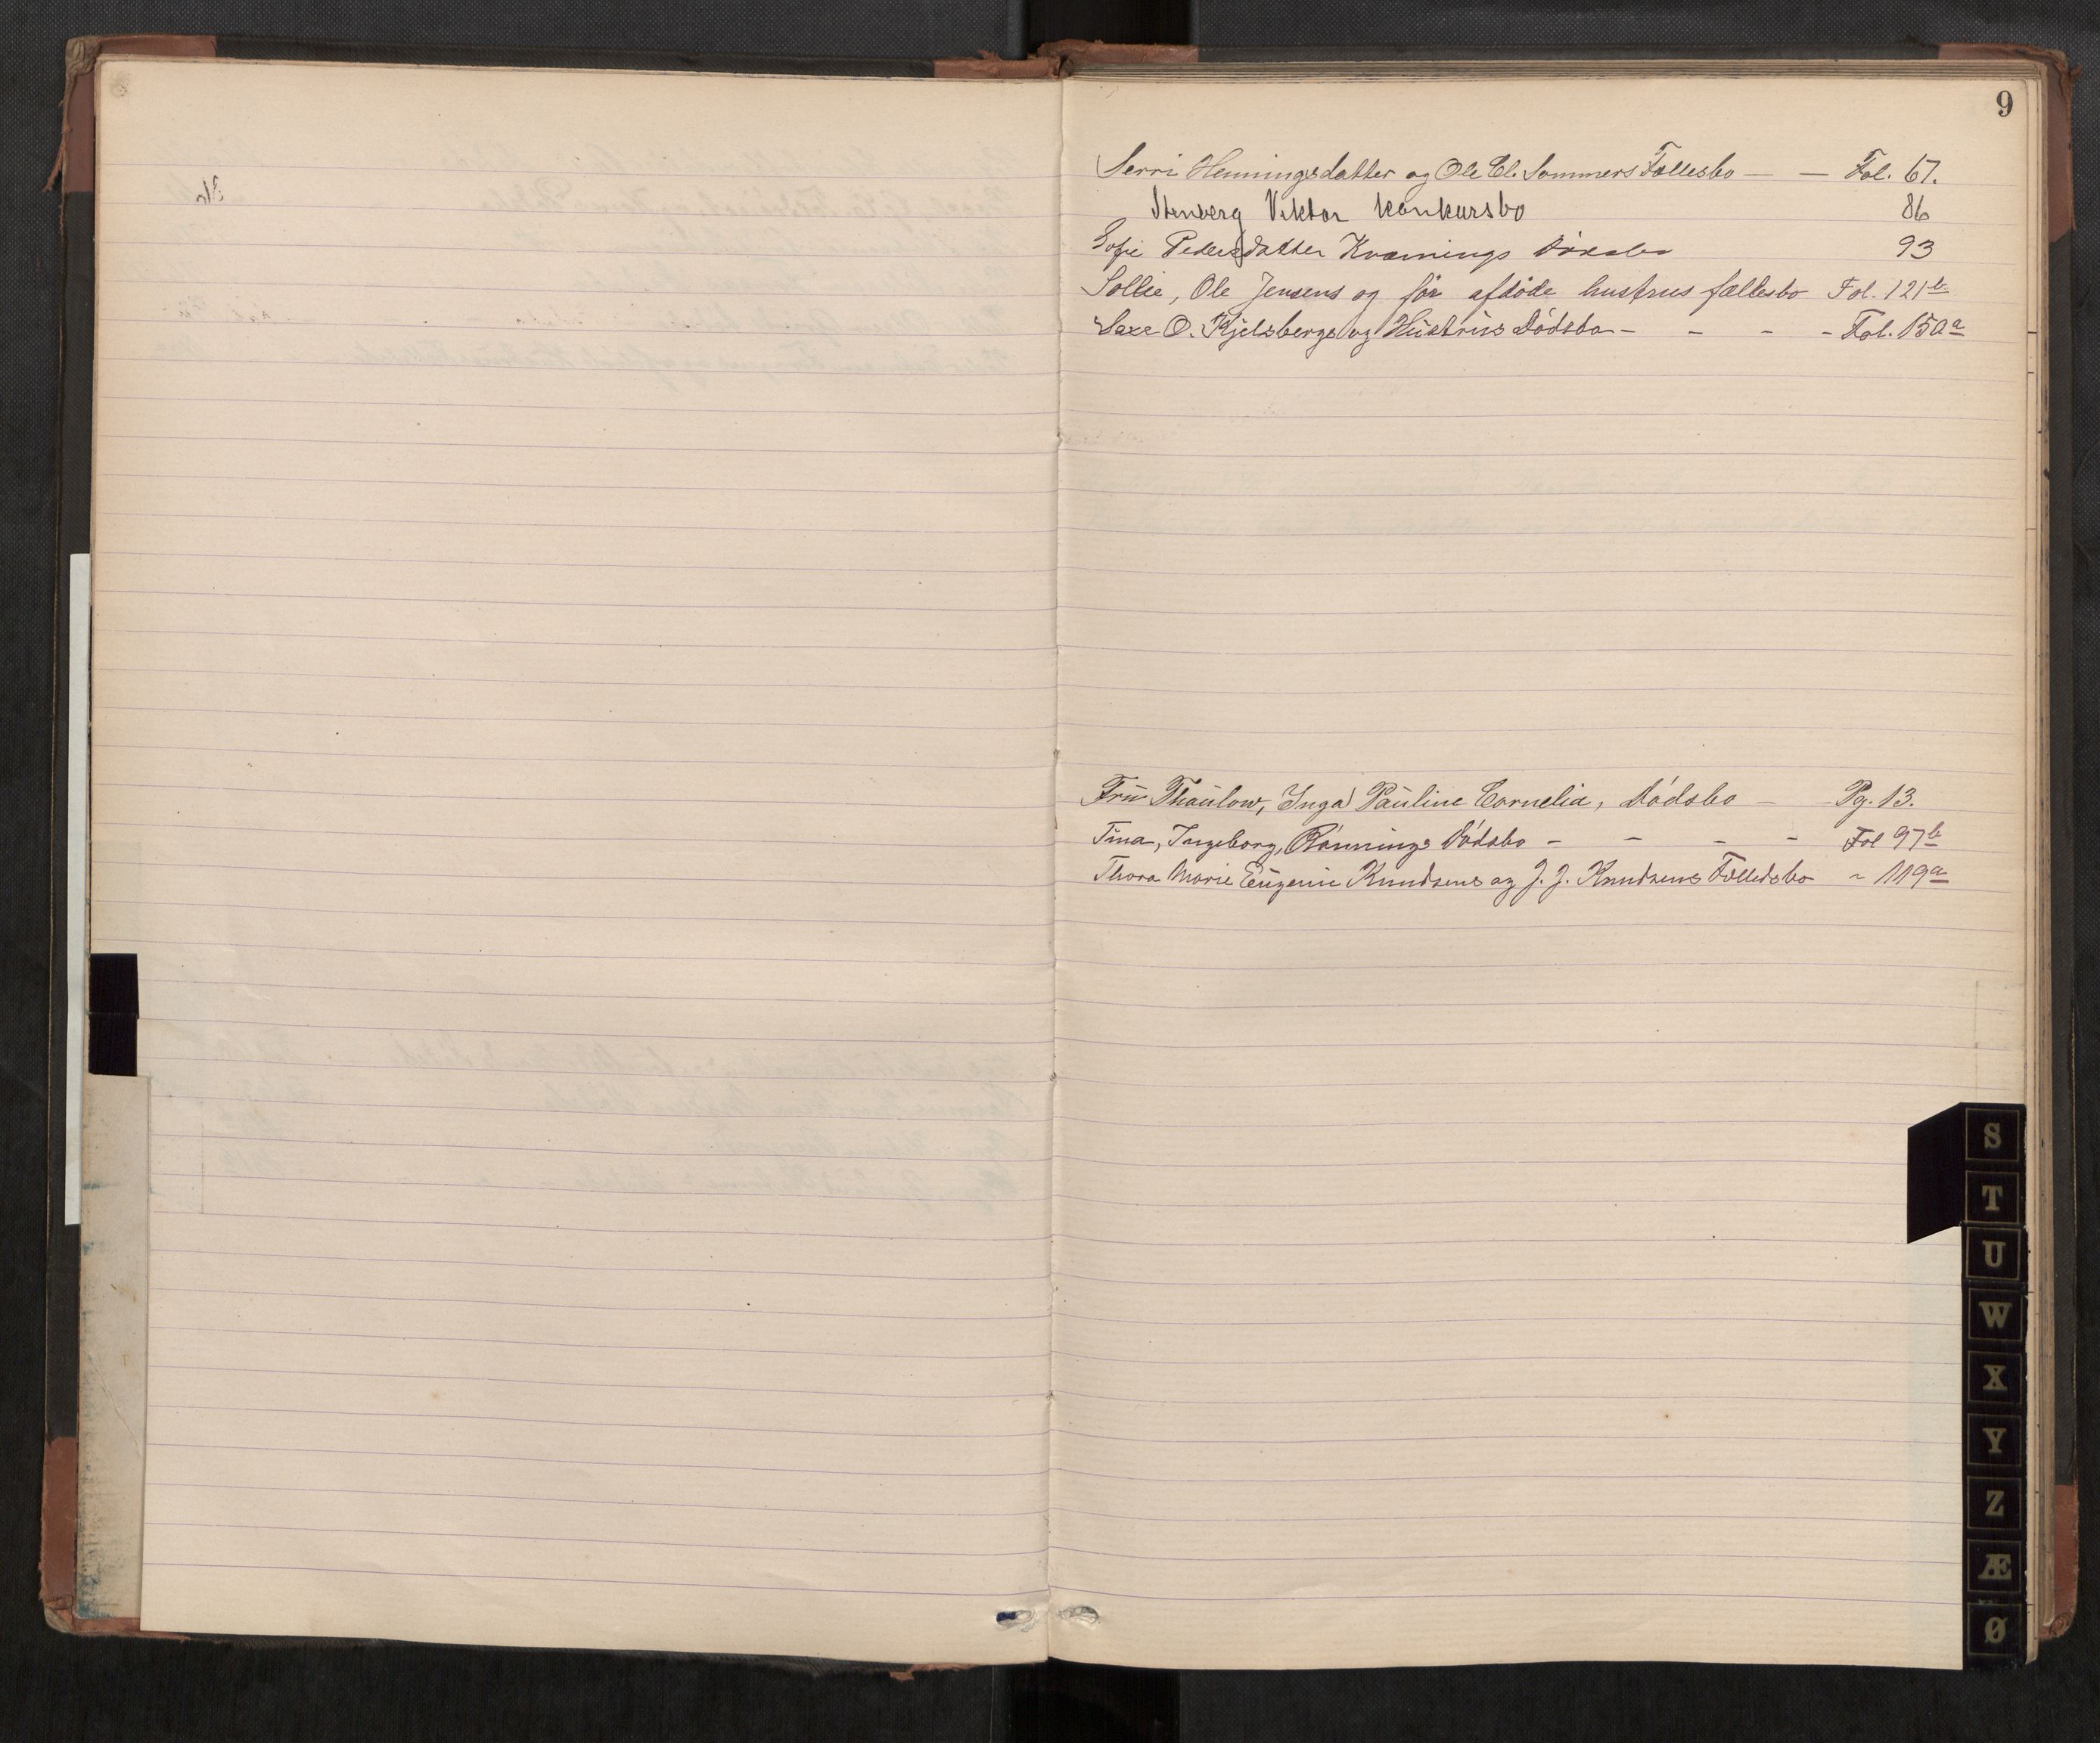 9
Serri Henningsdatter og Ole El. Sommers Fællesbo — — Fol. 67.
Stenberg Viktor konkursbo 86
Sofie Pedersdatter Kvamings Dödsbo 93
Sollie, Ole Jensens og før afdöde hustrus fællesbo Fol. 121b
Saxe O. Kjelsbergs og Hustrus Dödsbo - - - - Fol. 150a
Fru Thaulow, Inga Pauline Cornelia, Dödsbo — Pg. 13.
Tina, Ingeborg, Rønnings Dödsbo - - - - Fol 97b
Thora Marie Eugenie Knudsens og J. J. Knudsens Fællesbo ~ 119a
S
T
U
W
X
Y
Z
Æ
Ø